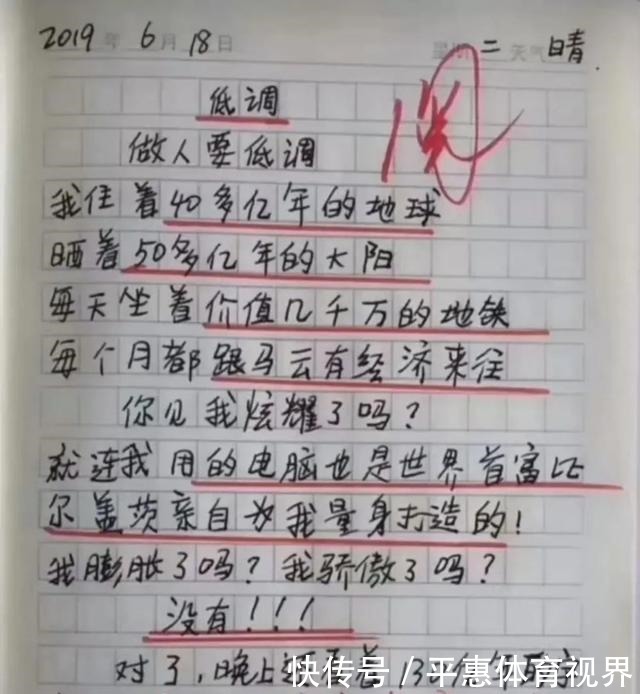 2019年 6月 18日 星期二 天气 晴
低调
做人要低调
阅
我住着40多亿年的地球
晒着50多亿年的大阳
每天坐着价值几千万的地铁
每个月都跟马云有经济来往
你见我炫耀了吗?
就连我用的电脑也是世界首富比
尔盖茨亲自为我量身打造的!
我膨胀了吗?我骄傲了吗?
没有!!!
对了,晚上
快传号/平惠体育视界